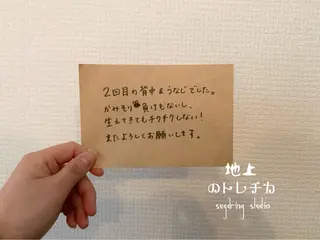 2回目の背中&うなじでした。
かみそり負けもないし、
生えてきてもチクチクしない!
またよろしくお願いします。
地上
のトレチカ
sugaring studio